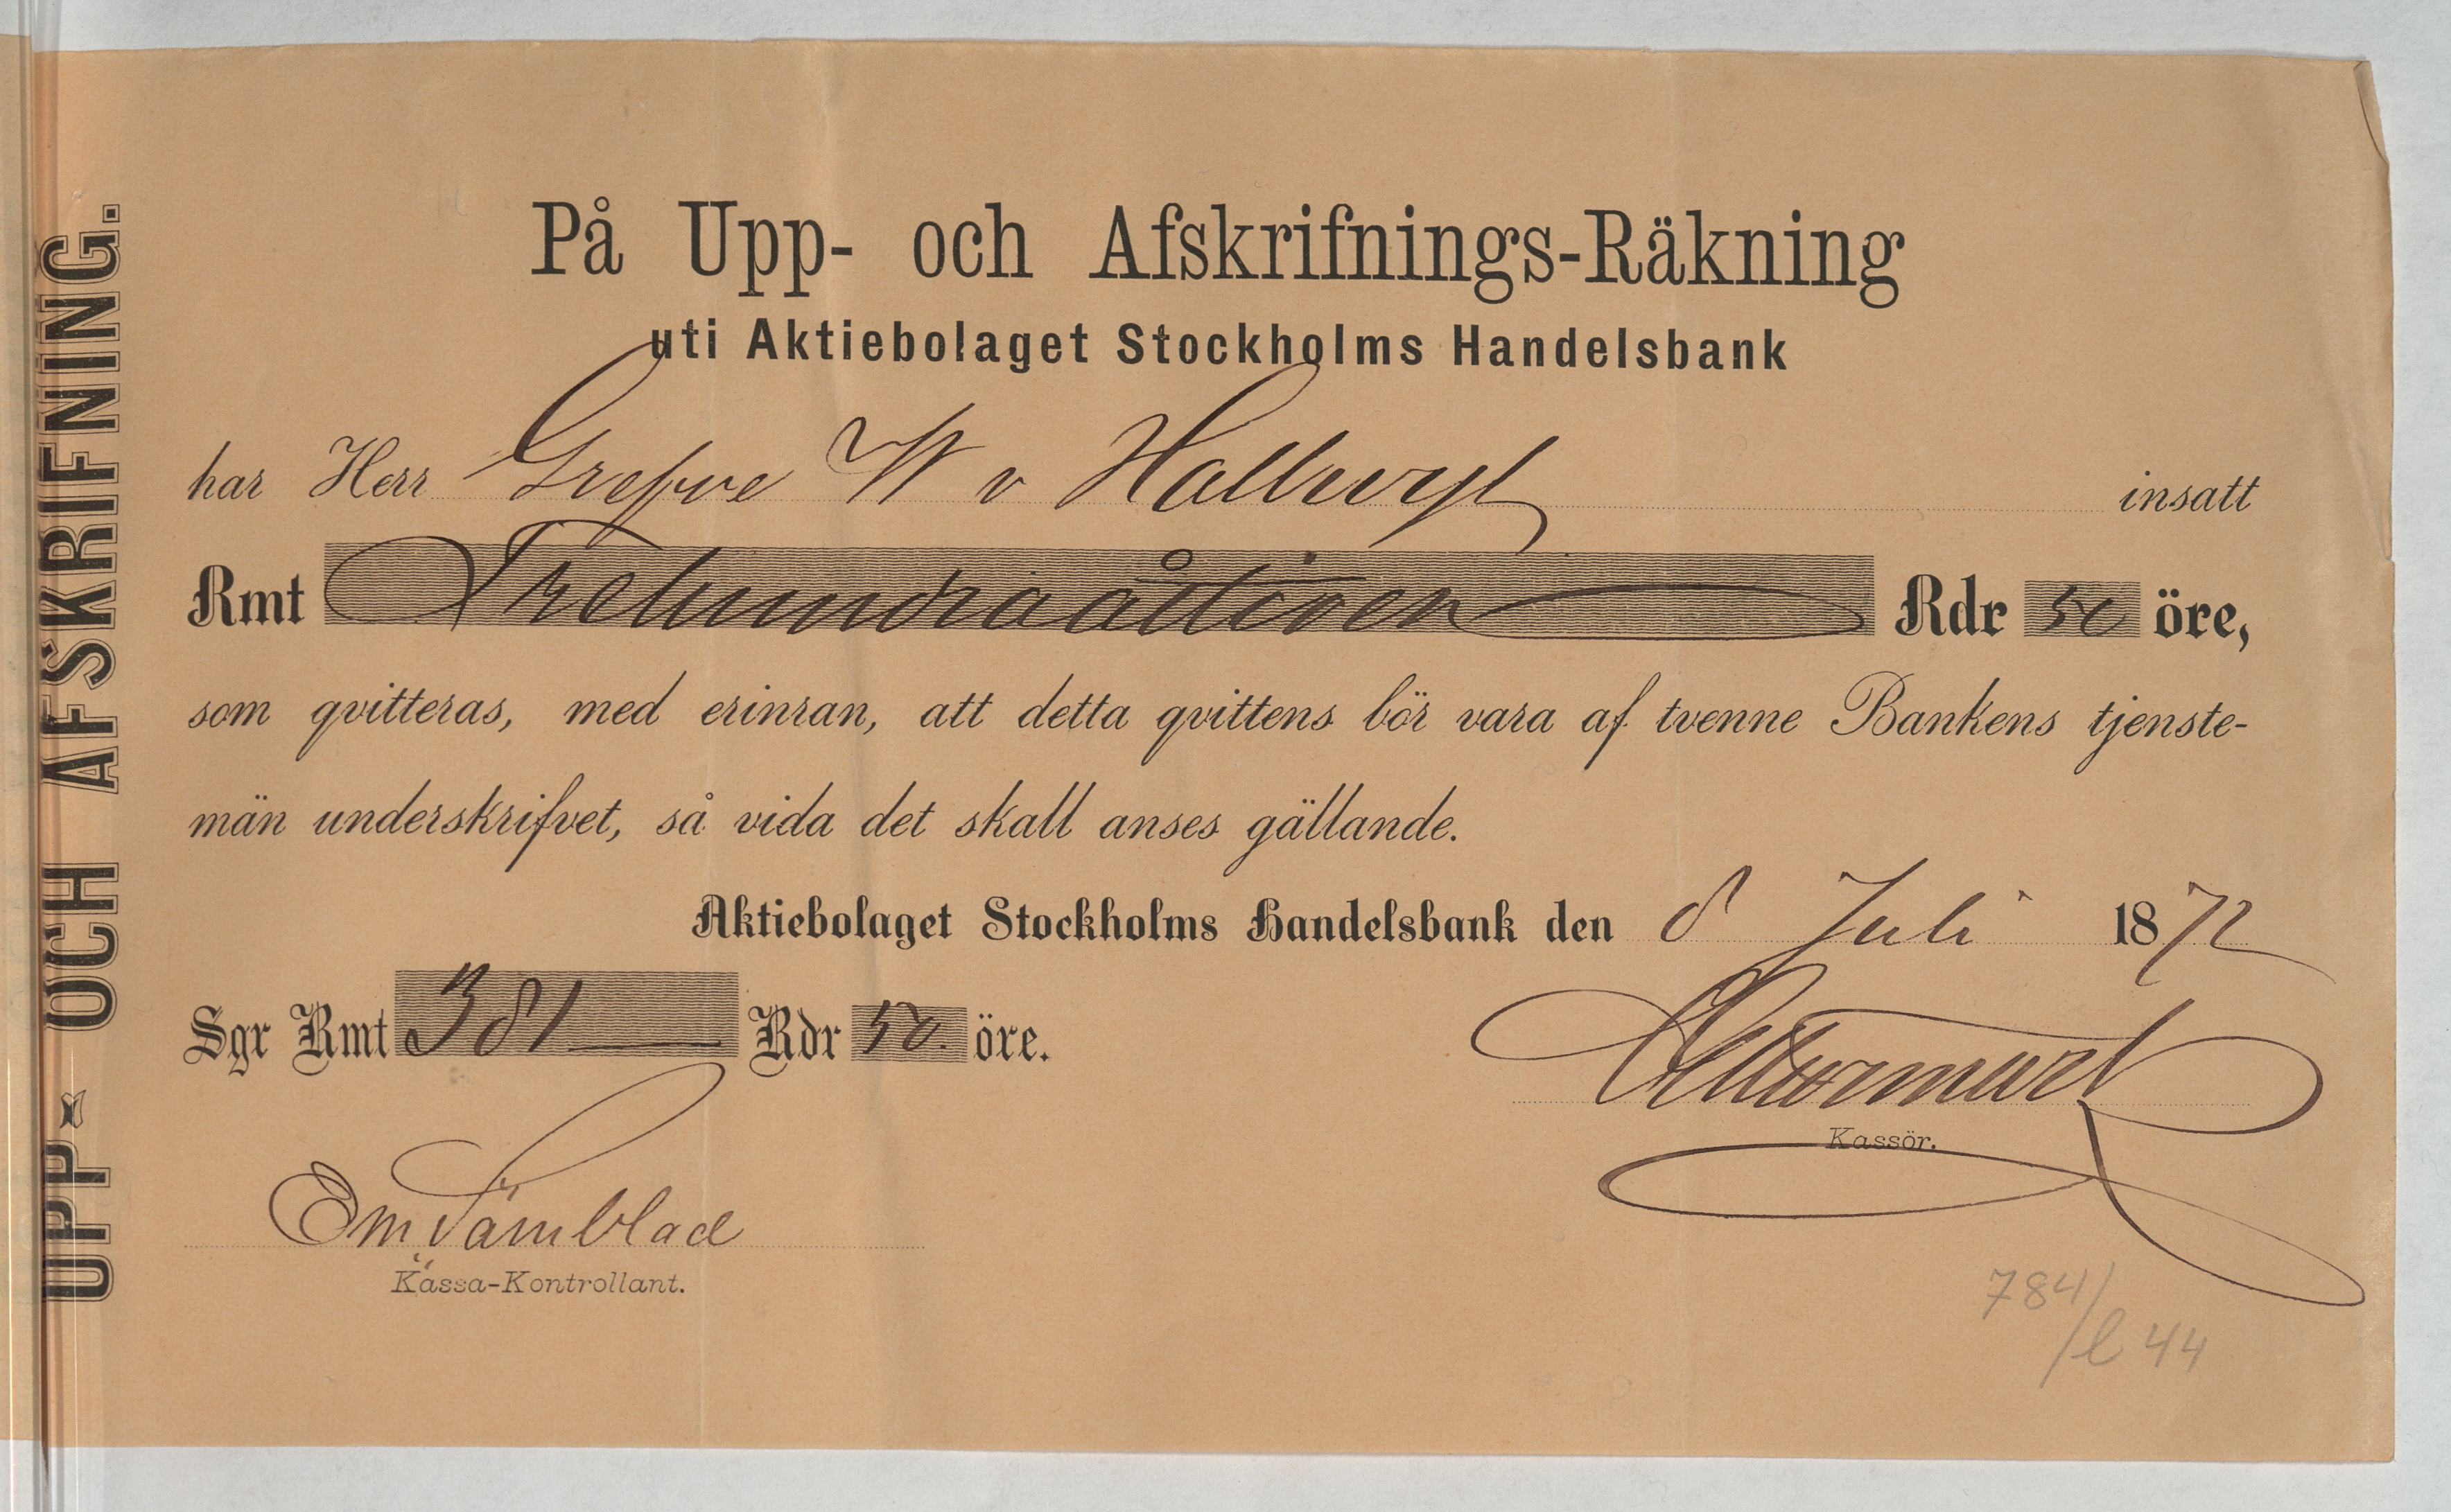 UPP- OCH AFSKRIFNING.
På Upp- och Afskrifnings-Räkning
uti Aktiebolaget Stockholms Handelsbank
har Herr Grefve W v Hallwyl insatt
Rmt Trehundraåttioen Rdr 50 öre,
som qvitteras, med erinran, att detta qvittens bör vara af tvenne Bankens tjenste-
män underskrifvet, så vida det skall anses gällande.
Aktiebolaget Stockholms Handelsbank den 8 Juli 1872
Sgr Rmt 381 Rdr 50 öre.
Kassör.
Em
Kassa-Kontrollant.
784/
l 44